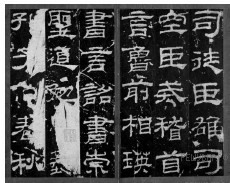 司徒臣雄司
空臣戒稽首
言魯前相瑛
書言詔書崇
聖道藝
孔子作春秋